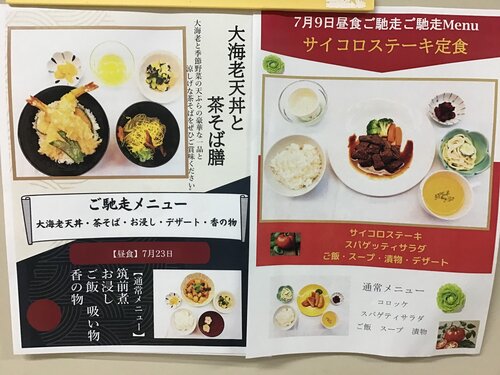 大海老天丼と
茶そば膳
大海老と季節野菜の天ぷらの豪華な一品と
涼しげな茶そばをぜひご賞味ください
ご馳走メニュー
大海老天丼・茶そば・お浸し・デザート・香の物
【昼食】7月23日
【通常メニュー】
筑前煮
お浸し
ご飯 吸い物
香の物
7月9日昼食ご馳走ご馳走Menu
サイコロステーキ定食
サイコロステーキ
スパゲッティサラダ
ご飯・スープ・漬物・デザート
通常メニュー
コロッケ
スパゲティサラダ
ご飯 スープ 漬物